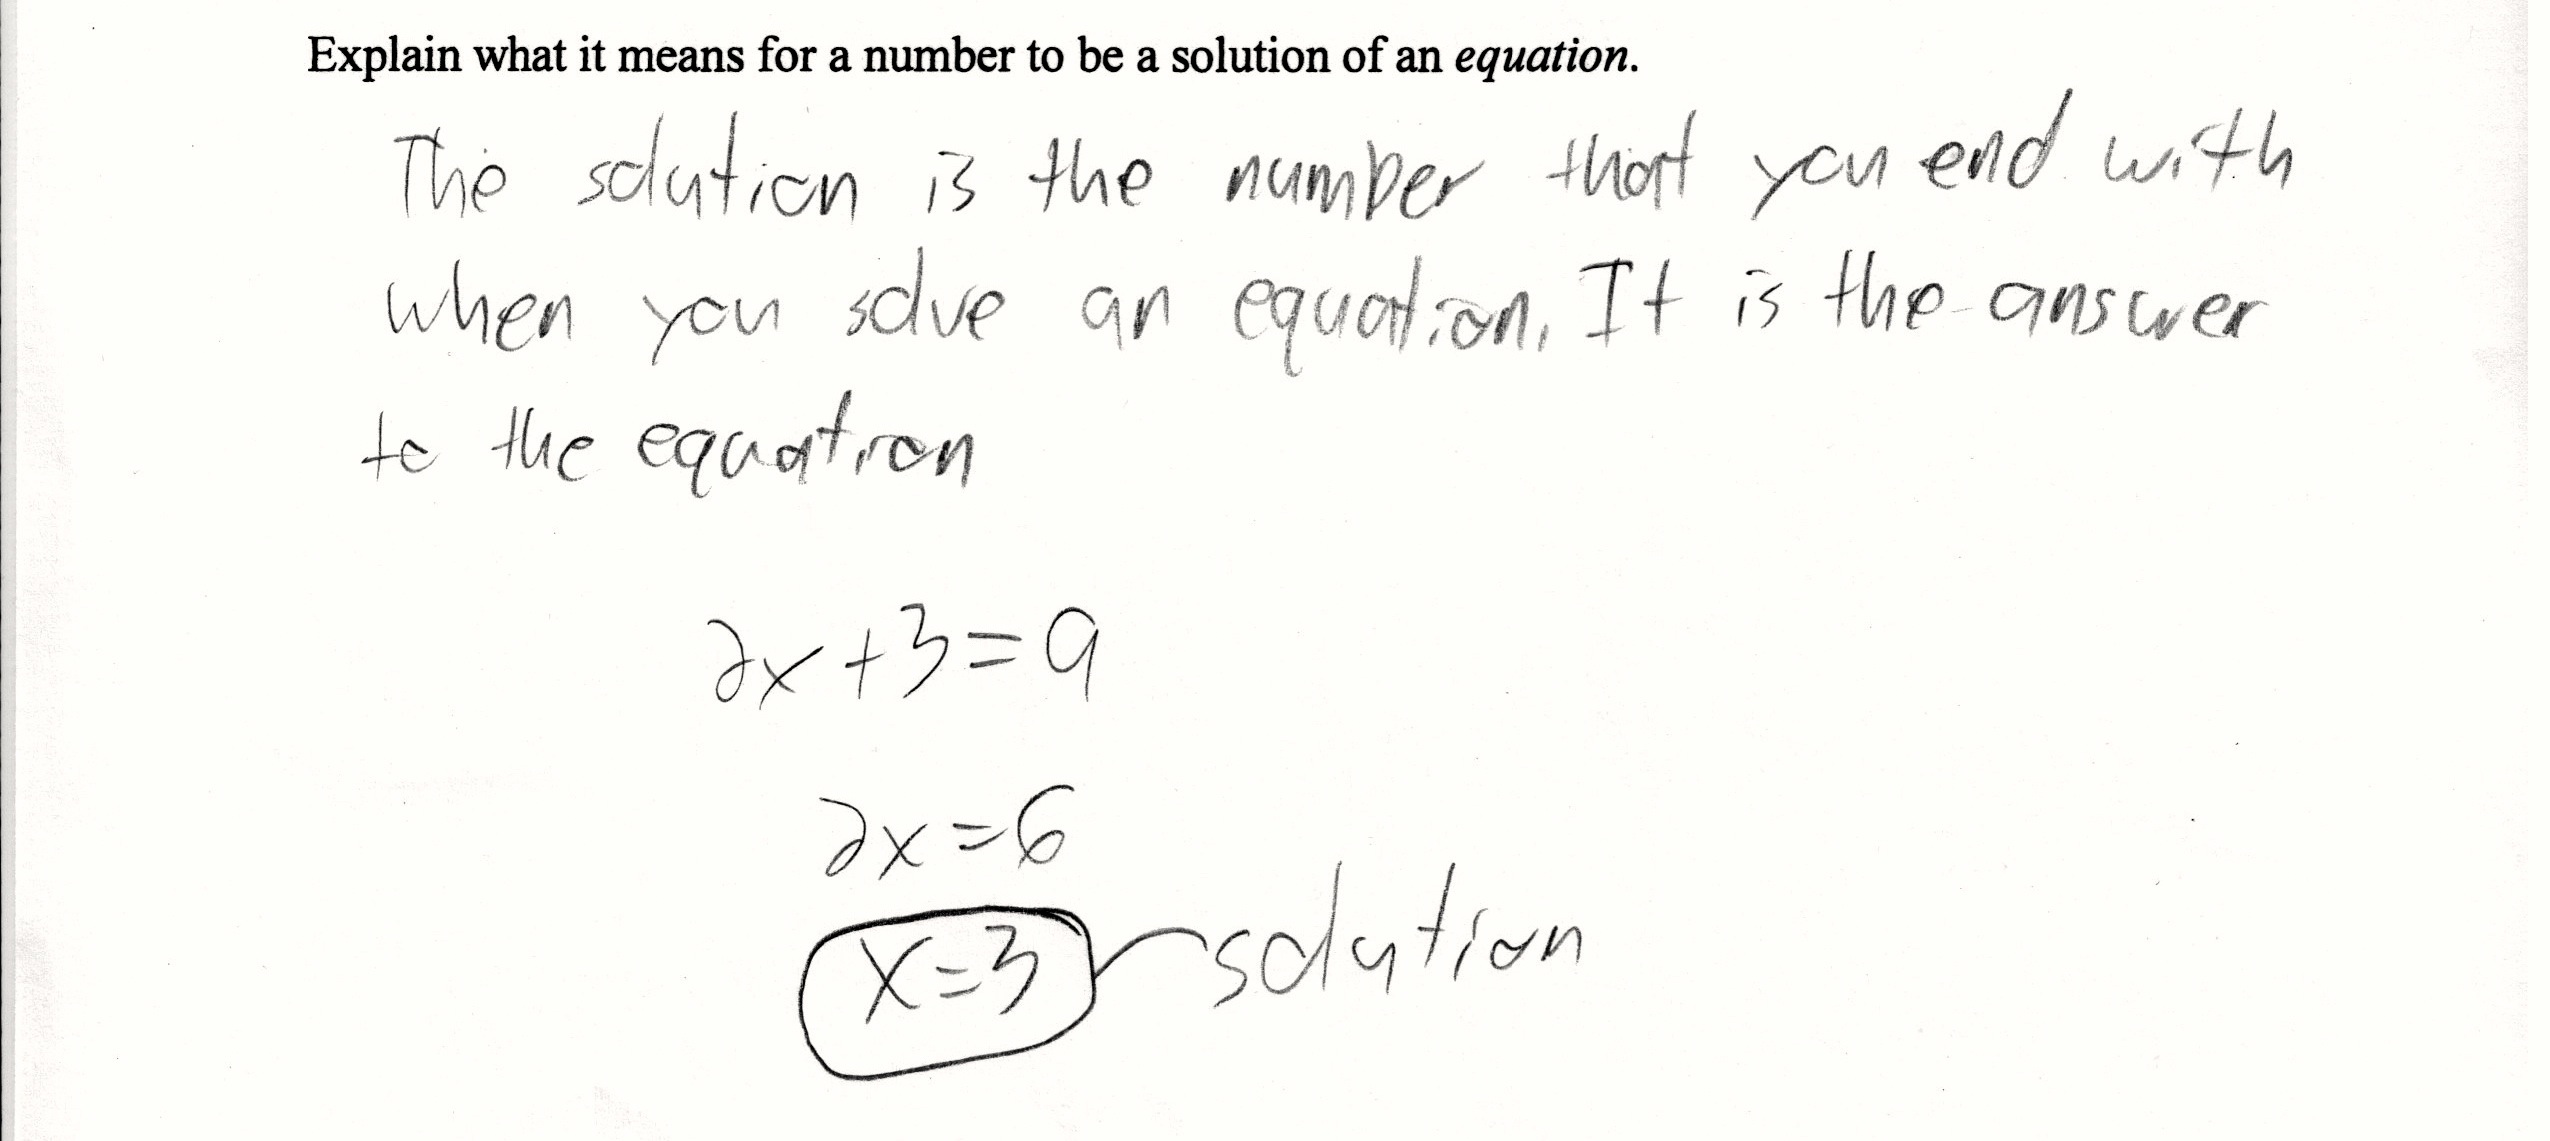 Explain what it means for a number to be a solution of an equation.
The solution is the number that you end with
when you solve an equation. It is the answer
to the equation
2x+3=9
2x=6
x=3 solution